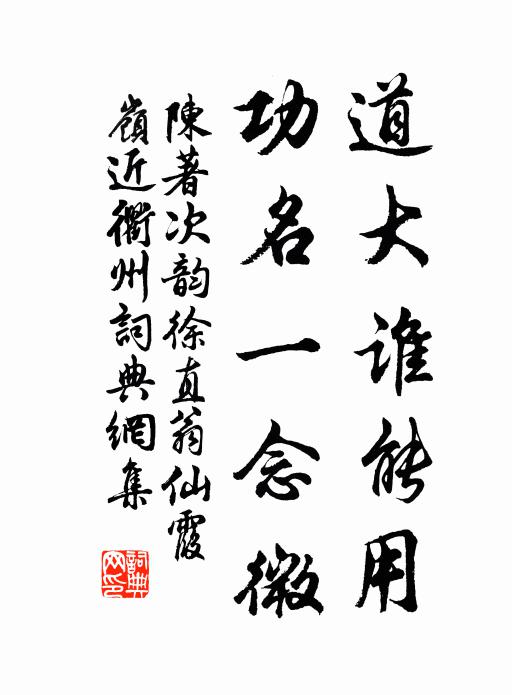 道大誰能用
功名一念微
陳著次韵徐直翁仙霞
嶺近衢州詞典網集
詞典网印